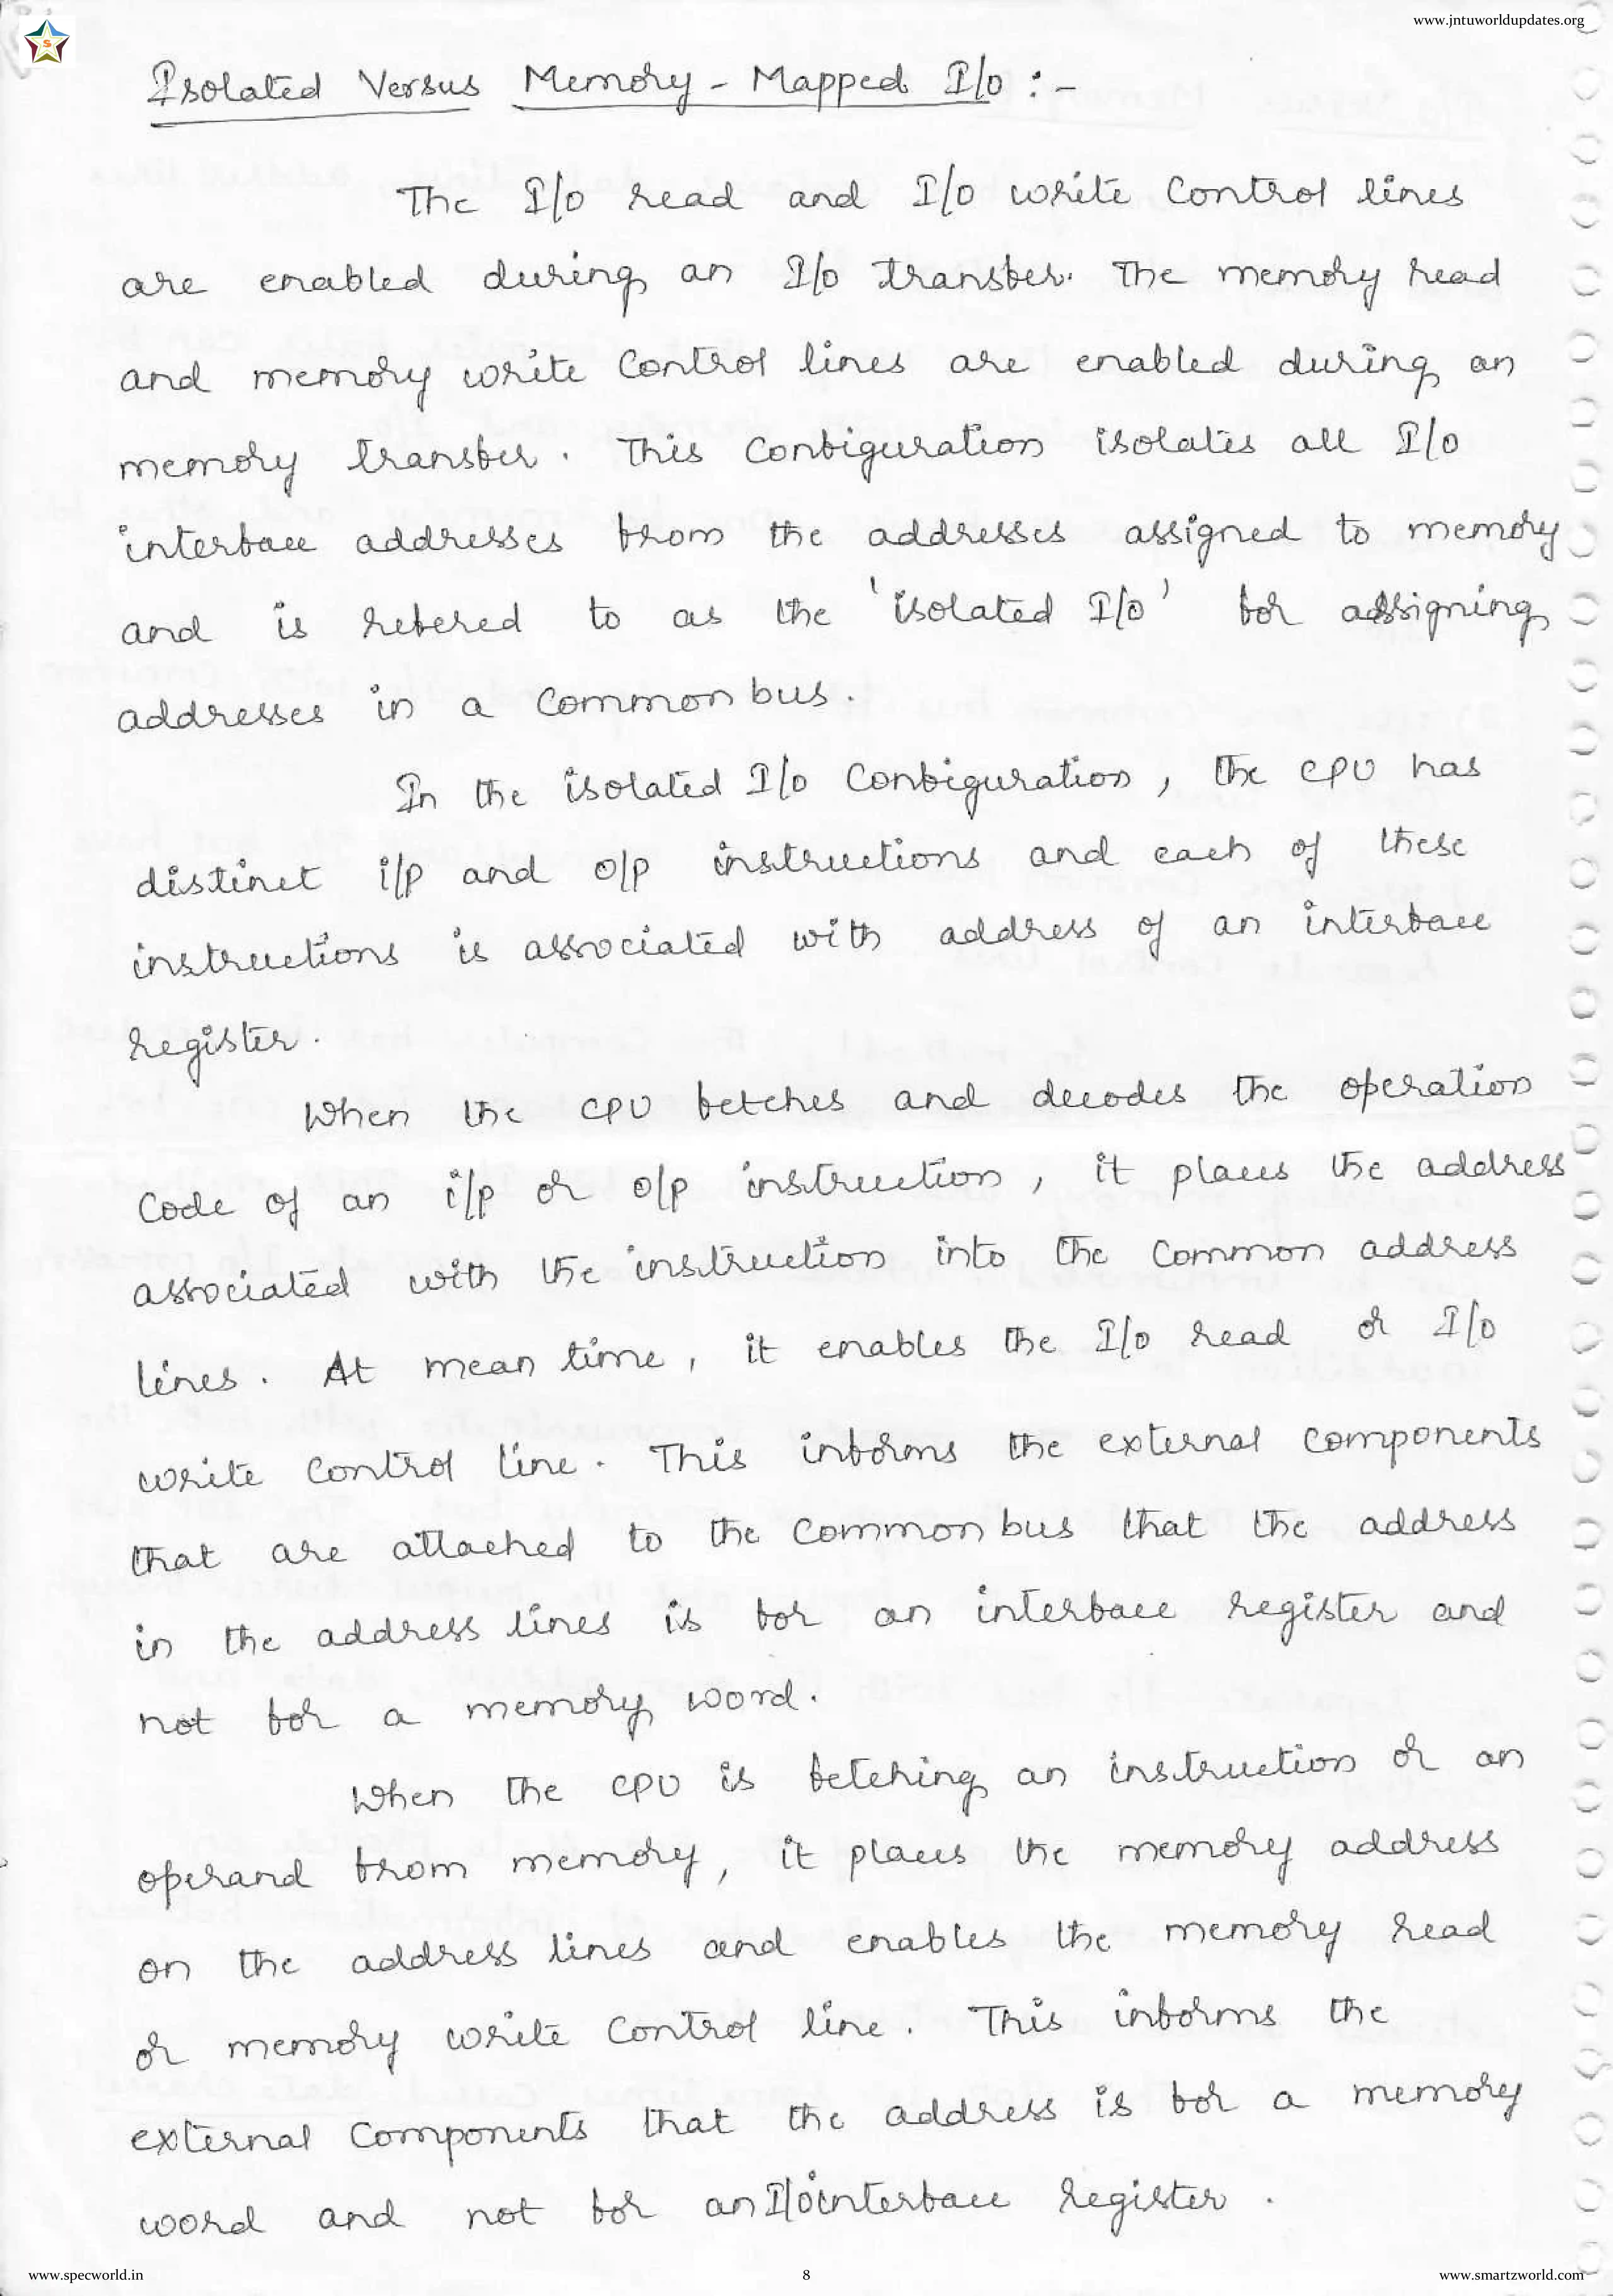 www.jntuworldupdates.org
S
Isolated Versus Memory - Mapped I/o : -
The I/o read and I/o write control lines
are enabled during an I/o transfer. The memory read
and memory write control lines are enabled during an
memory transfer. This configuration isolates all I/o
interface addresses from the addresses assigned to memory
and is refered to as the 'isolated I/o' for assigning
addresses in a common bus.
In the isolated I/o configuration, the CPU has
distinct i/p and o/p instructions and each of these
instructions is associated with address of an interface
register.
When the CPU fetches and decodes the operation
code of an i/p or o/p instruction, it places the address
associated with the instruction into the common address
lines. At mean time, it enables the I/o read or I/o
write control line. This informs the external components
that are attached to the common bus that the address
in the address lines is for an interface register and
not for a memory word.
When the CPU is fetching an instruction or an
operand from memory, it places the memory address
on the address lines and enables the memory read
or memory write control line. This informs the
external components that the address is for a memory
word and not for an I/o interface register.
www.specworld.in 8 www.smartzworld.com